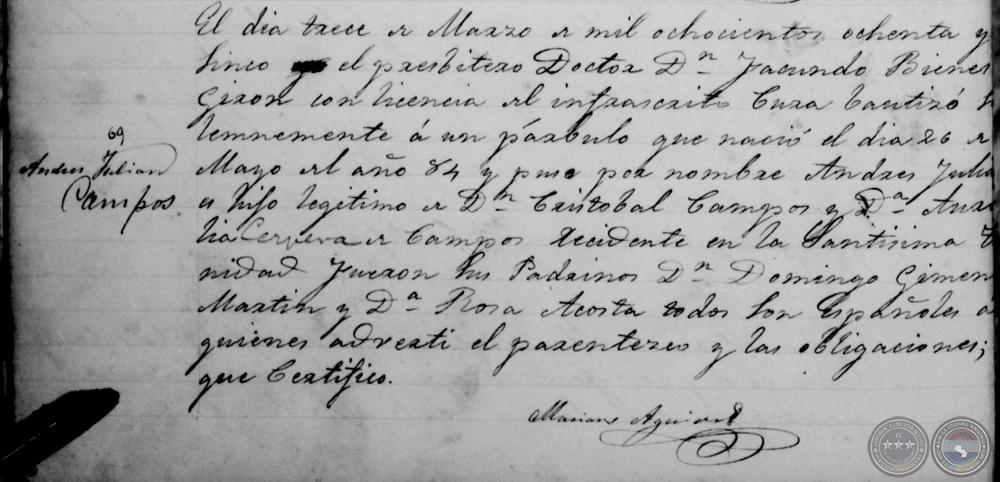 El dia trece de Marzo de mil ochocientos ochenta y
sinco el presbitero Doctor Dn Facundo Bienes
Giron con licencia del infrascrito Cura bautizó so
lemnemente á un párbulo que nació el dia 26 de
69
Andres Julian
Campos
Mayo del año 84 y puse por nombre Andres Julia
es hijo legitimo de Dn Cristobal Campos y Da Aure
lia Cervera de Campos Recidente en la Santisima Tri
nidad Fueron sus Padrinos Dn Domingo Gimen
Martin y Da Rosa Acosta todos son Españoles á
quienes adverti el parentezco y las obligaciones;
que Certifico.
Mariano